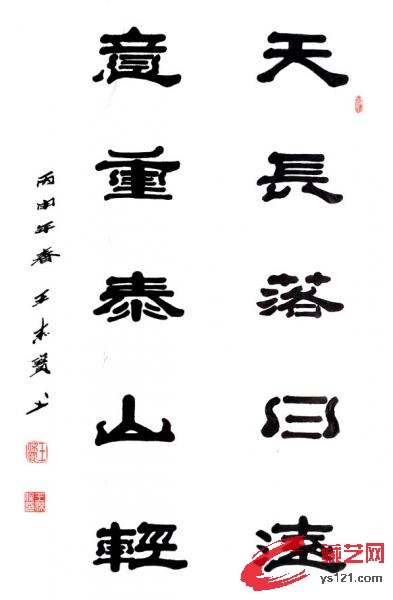 天長落日遠
意重泰山輕
丙申年春 王
艺网
ys121.com